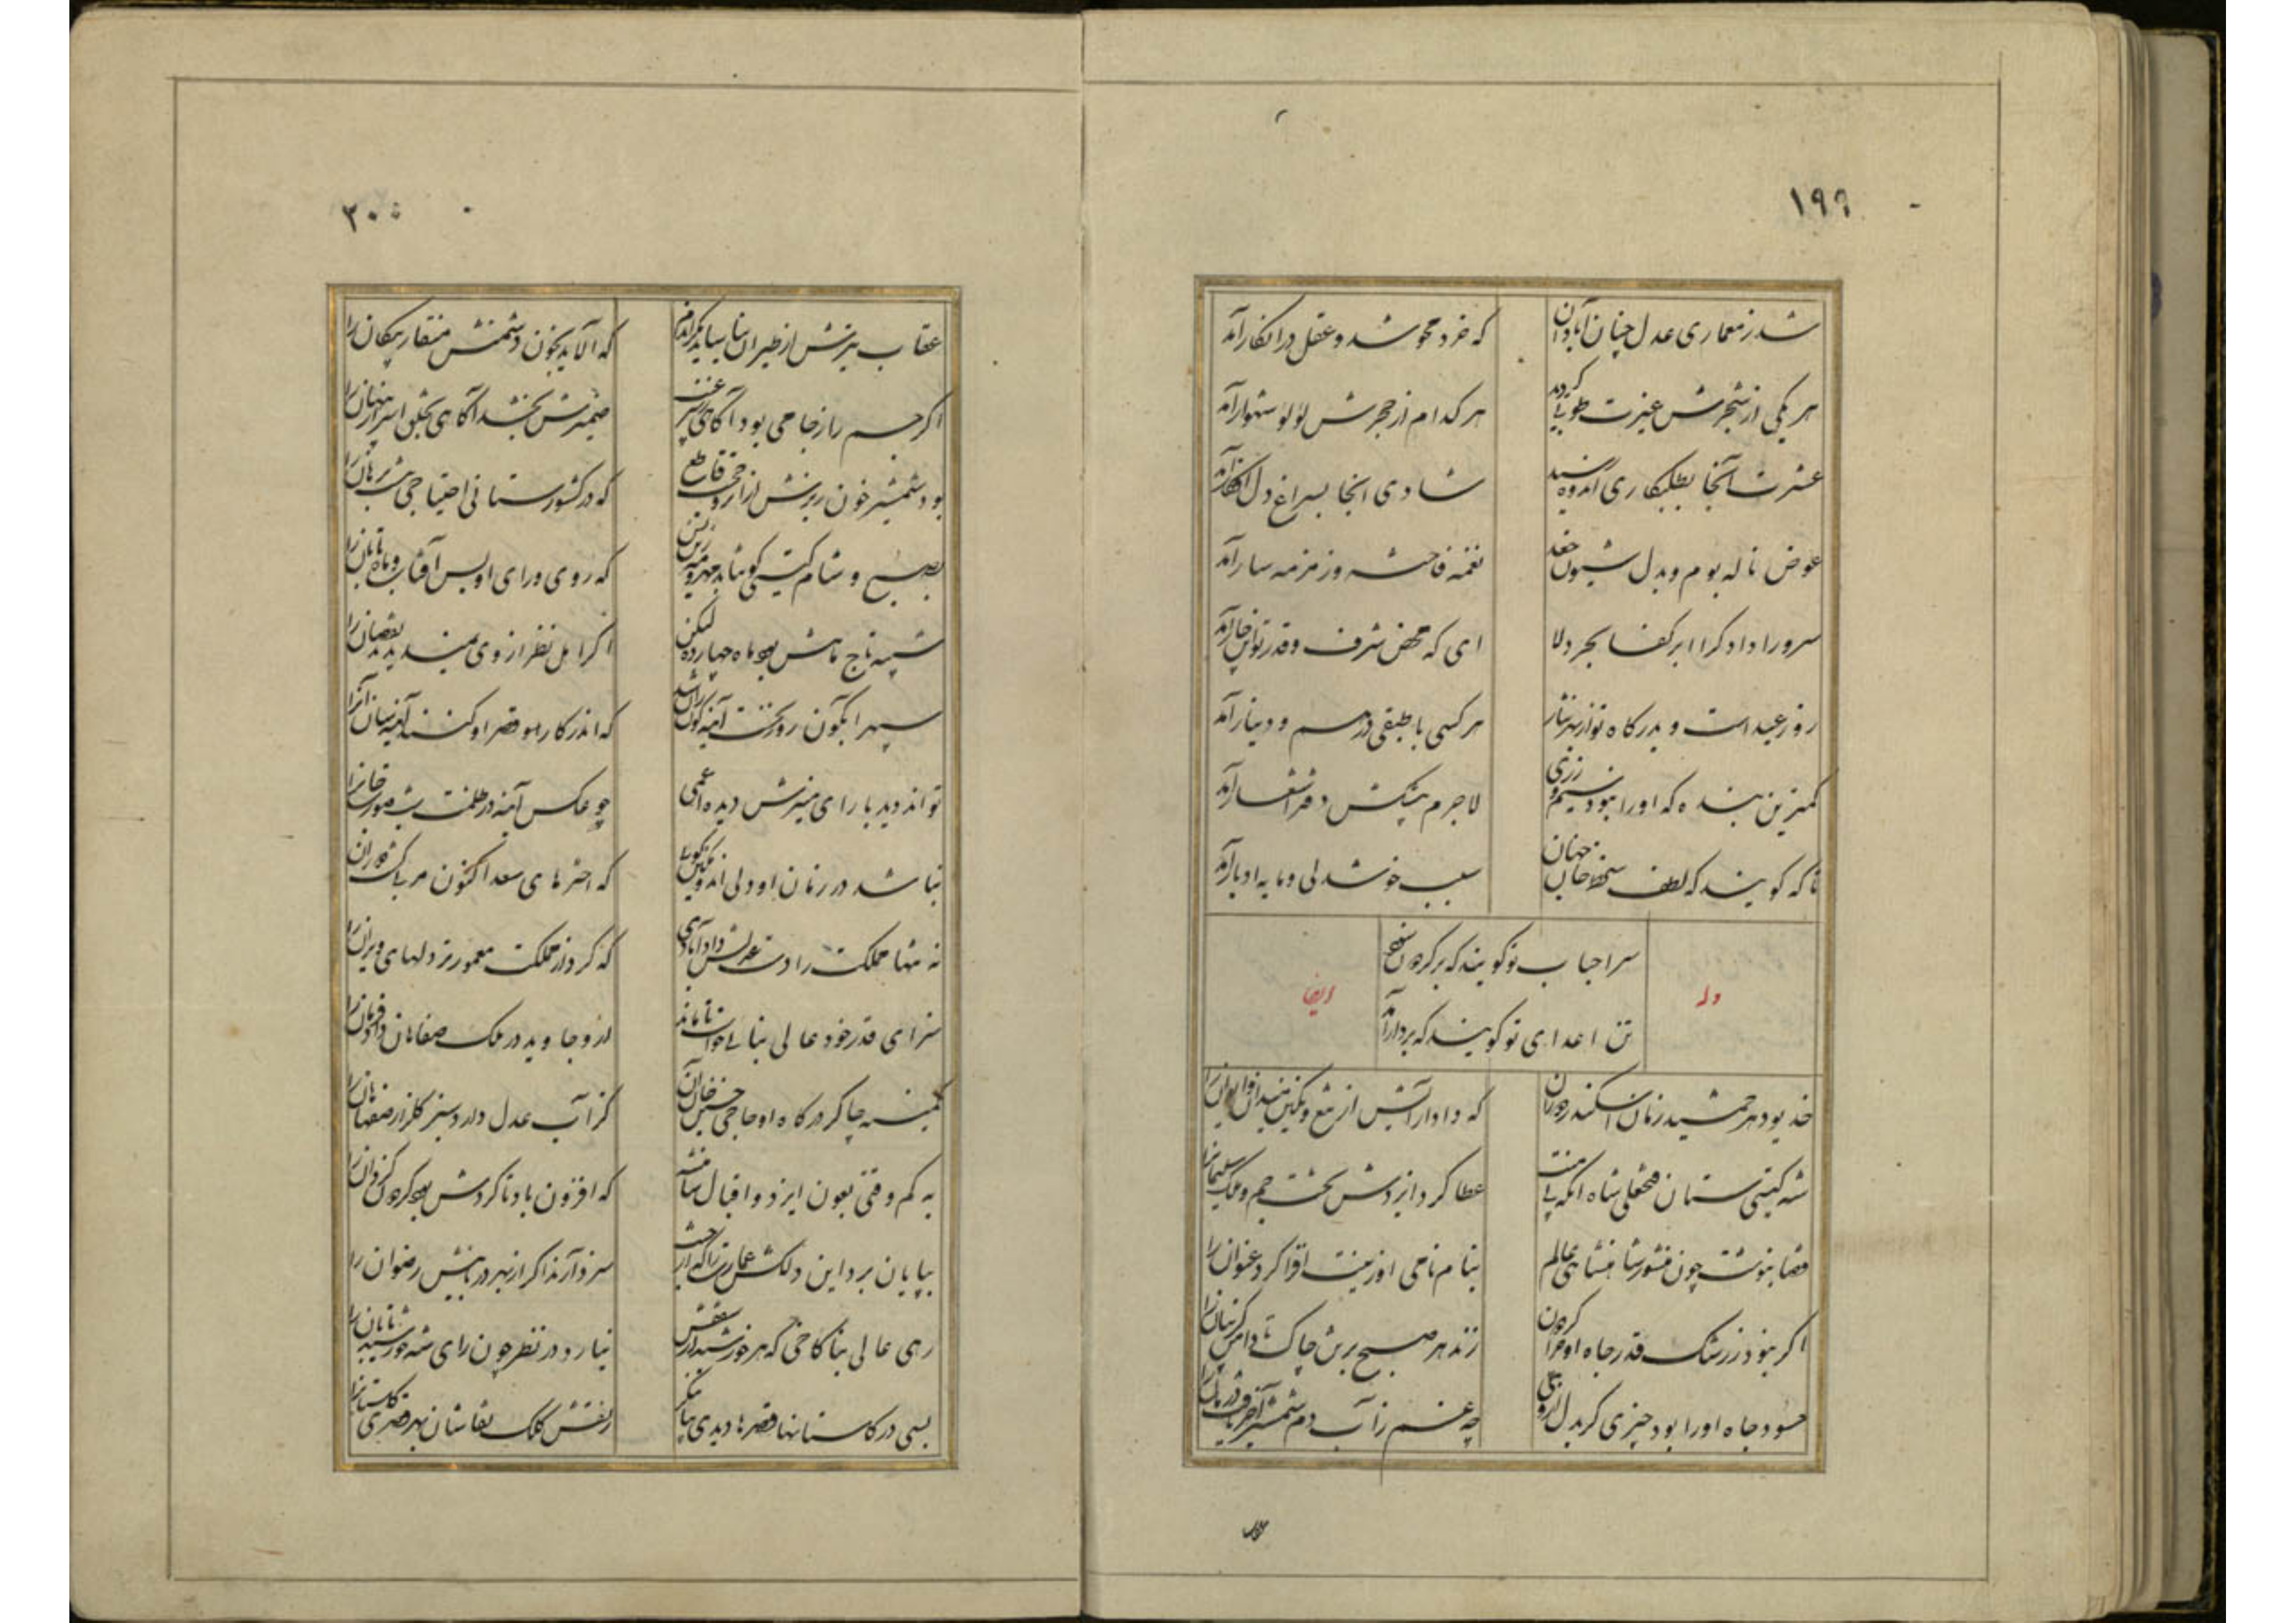 ۱۹۹
شد ز معماری عدل چنان آبادان
که خرد محو شد و عقل در انکار آمد
هر یکی از شجرش غیرت طوبی گردید
هر کدام از حجرش لؤلؤ شهوار آمد
عشرت آنجا بطلبکاری اندوه رسید
شادی آنجا بسراغ دل افکار آمد
عوض ناله بوم و بدل شیون جغد
نغمه فاخته و زمزمه سار آمد
سرورا دادگرا ابر کفا بحر دلا
ای که محض شرف و قدر تو
روز عید است و بدرگاه تو از بهر نثار
هر کسی با طبقی درهم و دینار آمد
کمترین بنده که او را نبود سیم و زری
لاجرم پیشکش دفتر اشعار آمد
تا که گویند که لطف جهان
سبب خوشدلی و مایه ادبار آمد
سر احباب تو گویند که بر گردون سود
تن اعدای تو گویند که بردار آمد
وله
ایضا
خدیو دهر جمشید زمان اسکندر دوران
که دادار آتش از تیغ و نگین
شه گیتی ستان فتحعلی شاه آنکه بی منت
عطا کرد ایزدش تخت جم و ملک سلیمانرا
قضا بنوشت چون منشور شاهنشاهی عالم
بنام نامی او زینت افزا کرد عنوان را
اگر نبود ز رشک قدر جاه او چرا گردون
زند هر صبح برتن چاک تا دامن گریبانرا
حسود جاه او را بود چیزی گر بدل
چه غم ز آب دم شمشیر
۲۰۰
عقاب تیرش از طیران نیاساید
که آلاید بخون دشمنش منقار پیکان را
اگر جم را ز جامی بود آگاهی
ضمیرش بخشد آگاهی بخلق اسرار پنهان را
بود شمشیر خون ریزش قاطع
که در کشورستانی احتیاجی نیست برهان را
بصبح و شام گیتی گو متاب مهر و مه زین پس
که روی و رای او بس آفتاب و ماه تابان را
شبیه تاج ماهش بود ماه چهارده لیکن
اگر اهل نظر از وی بدیدند نقصان را
سپهر آبگون رو گشت آینه گون
که اندر کار بوم قصر او کنند آینه بندان را
تواند دید با رای منیرش دیده اعمی
چو عکس آینه در ظلمت شب صورت جانرا
نباشد در زمان او دلی اندوهگین گویی
که اخترهای سعد اکنون دوران را
نه تنها مملکت را دست عدلش داد آبادی
که کرد از مملکت معمورتر دلهای ویران را
سزای قدر خود عالی بنائی خواست تا ماند
ازو جاوید در ملک صفاهان داد فرمان را
کمینه چاکر درگاه او حاجی حسین خان آن
کز آب عدل دارد سبز گلزار صفاهان را
به کم وقتی بعون ایزد و اقبال شاهنشه
که افزون باد تا گردش بود گردون گردان را
بپایان برد این دلکش عمارت را که از جنت
سزد آرند اگر از بهر دربانیش رضوان را
زهی عالی بنا کاخی که هر خورشید سقفش
نیارد در نظر چون رای شه خورشید تابان را
بسی در گلستانها قصرها دیدی بیا بنگر
ز نقش کلک نقاشان بهر قصری گلستانرا